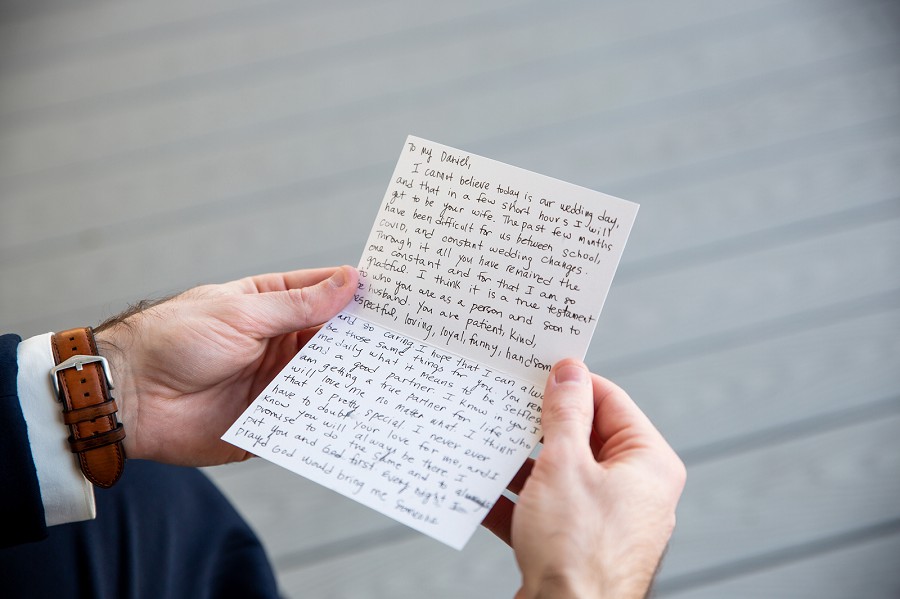 To My Daniel,
I cannot believe today is our wedding day,
and that in a few short hours I will
get to be your wife. The past few months
have been difficult for us between school,
COVID, and constant wedding changes.
Through it all you have remained the
one constant and for that I am so
grateful. I think it is a true testament
to who you are as a person and soon to
husband. You are patient, kind,
respectful, loving, loyal, funny, handsom
and so caring. I hope that I can alwa
be those same things for you. You rem
me daily what it means to be selfless
and a good partner. I know in you I
am getting a true partner for life who
will love me no matter what. I think
that is pretty special. I never ever
have to doubt your love for me, and I
know you will always be there. I
promise to do the same and to always
put you and God first. Every night I
prayed God would bring me someone